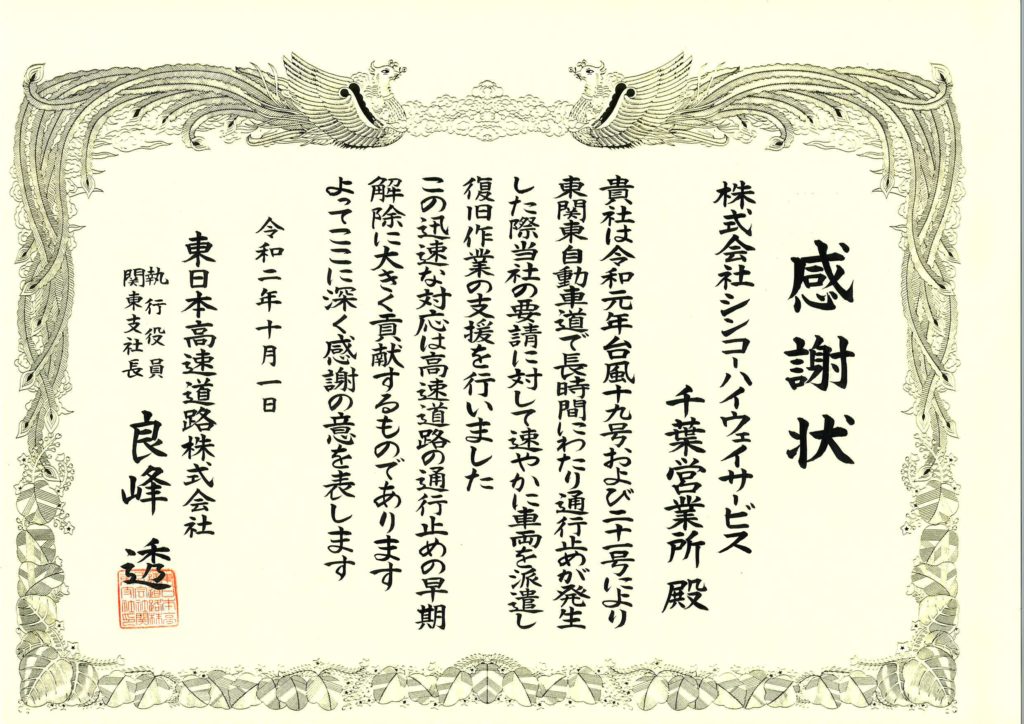 感謝状
株式会社シンコーハイウェイサービス
千葉営業所 殿
貴社は令和元年台風十九号、および二十一号により
東関東自動車道で長時間にわたり通行止めが発生
した際当社の要請に対して速やかに車両を派遣し
復旧作業の支援を行いました
この迅速な対応は高速道路の通行止めの早期
解除に大きく貢献するものであります
よってここに深く感謝の意を表します
令和二年十月一日
東日本高速道路株式会社
執行役員
関東支社長
良峰 透